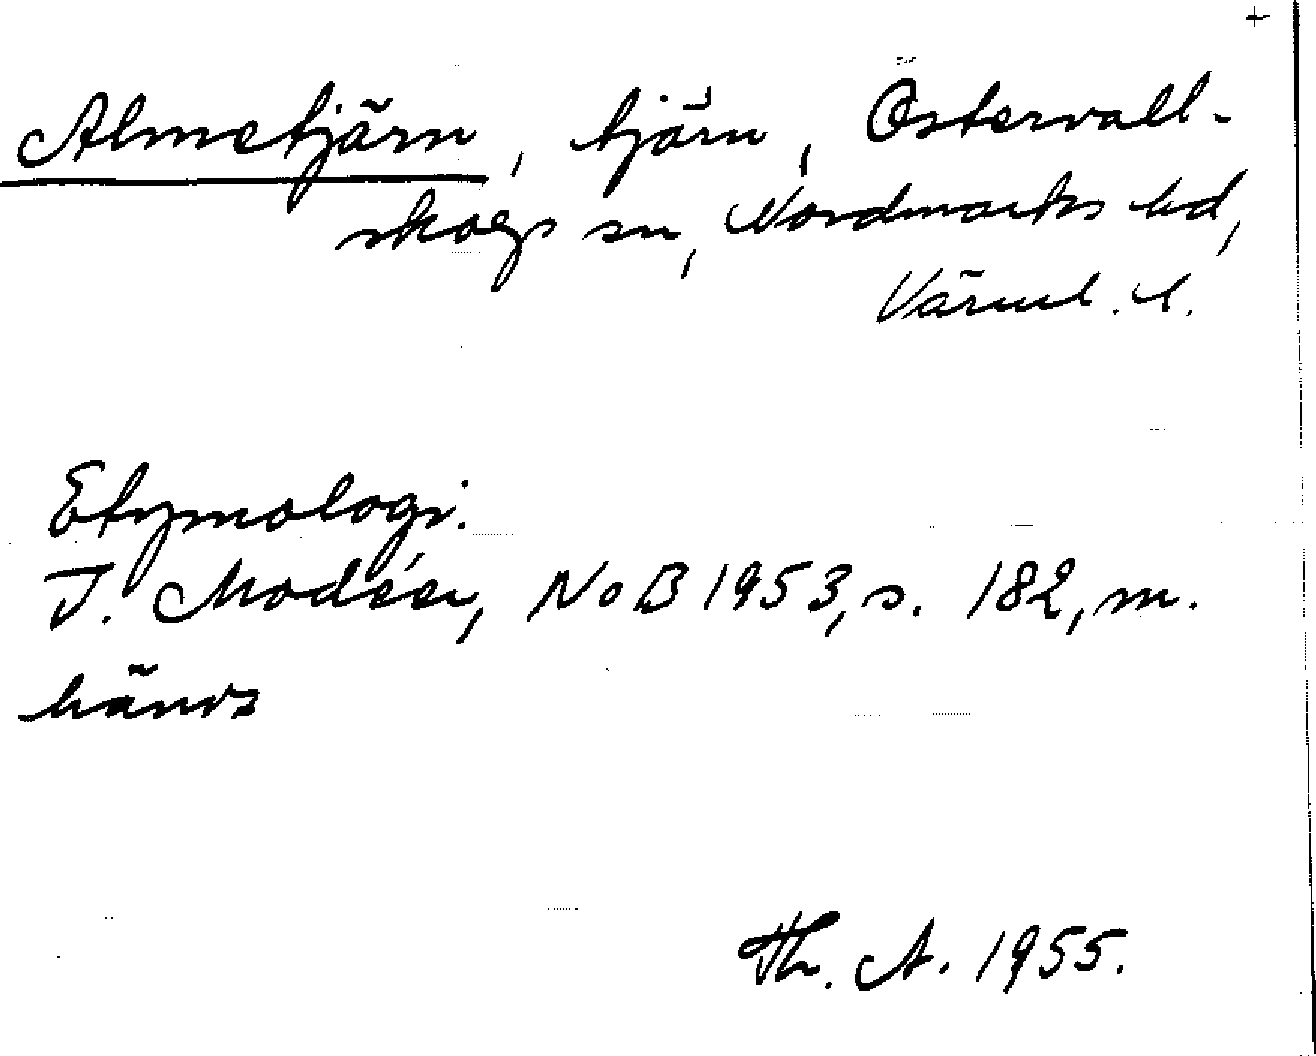 +
Almetjärn, tjärn, Östervall-
skogs sn, Nordmarks hd,
Värml. l.
Etymologi.
I. Modéer, NoB 1953, s. 182, m.
hänv.
Th. A. 1955.